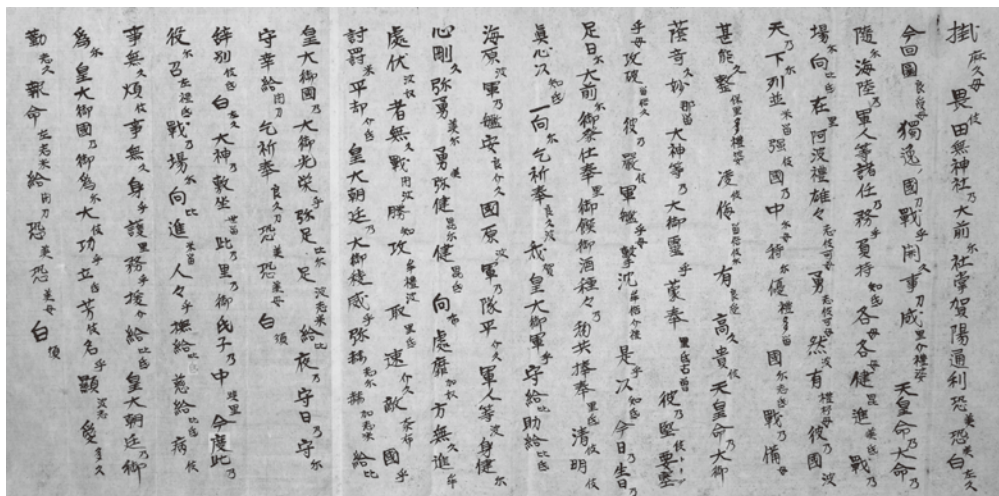 掛麻久母畏伎田無神社乃大前尓社掌賀陽通利恐美恐美白左久
今回圖良受母獨逸國刀戰乎開久事刀成里介禮婆天皇命乃大命乃
隨尓海陸軍人等諸任務乎負持知氐各母各母健毘進美氐戰乃
場尓向比氐在里阿波禮雄々志伎可毛勇志伎可毛然波有禮杼母彼乃國波
天下乃列並米留强國乃中尓母特尓優禮多留國尓志氐戰乃備母
甚能久整保里多禮婆凌侮留倍伎尓有良受高久貴伎天皇命乃大御
蔭奇妙那留大神等乃大御靈乎蒙奉里氐古曾彼乃堅伎要塞
乎母攻破留倍久彼乃嚴伎軍艦乎母擊沈牟倍介禮是乎以知氐今日乃生日乃
足日尓大前尓御祭仕奉里御饌御酒種々乃物共捧奉里氐清伎明伎
眞心以知氐一向尓乞祈奉良久波我賀皇大御軍乎守給比助給比氐
海原波軍乃艦安良介久國原波軍乃隊平介久軍人等波身健尓
心剛久弥勇美尓勇美弥健毘尓健毘氐向布處靡加奴方無久進牟
處伏波奴者無久戰閇波勝知攻牟禮波取里氐速介久敵奈布國乎
討罰米平却介氐皇大朝廷乃大御稜威乎弥稱志尓稱加志米給比
皇大御國乃大御光榮乎弥足比尓足波志米給比夜乃守日乃守尓
守幸給閇刀乞祈奉良久刀恐美恐美母白須
辞別伎氐白左久大神乃敷坐世留此乃里乃御氏子乃中與里今度此乃
役尓召左禮氐戰乃場尓向比進米留人々乎撫給比慈給比氐病伎
事無久煩伎事無久身乎護里務乎援介給比氐皇大朝廷乃御
爲尓皇大御國乃御爲尓大伎功乎立氐芳伎名乎顯波志愛多久
勤志久報命左志米給閇刀恐美恐美母白須